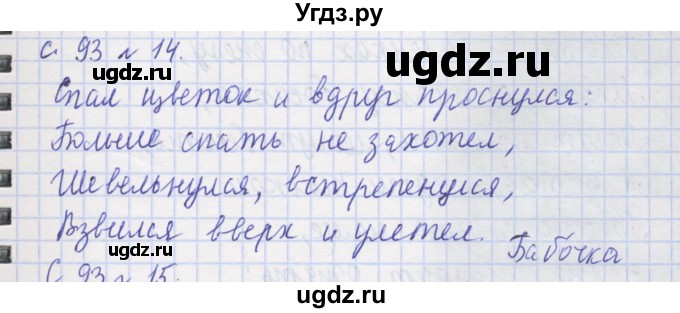 Угдз.ру
с. 93 № 14.
ugdz.ru
Спал цветок и вдруг проснулся:
Больше спать не захотел,
Шевельнулся, встрепенулся,
Взвился вверх и улетел.
Бабочка
с. 93 № 15.
ugdz.ru
ugdz.ru